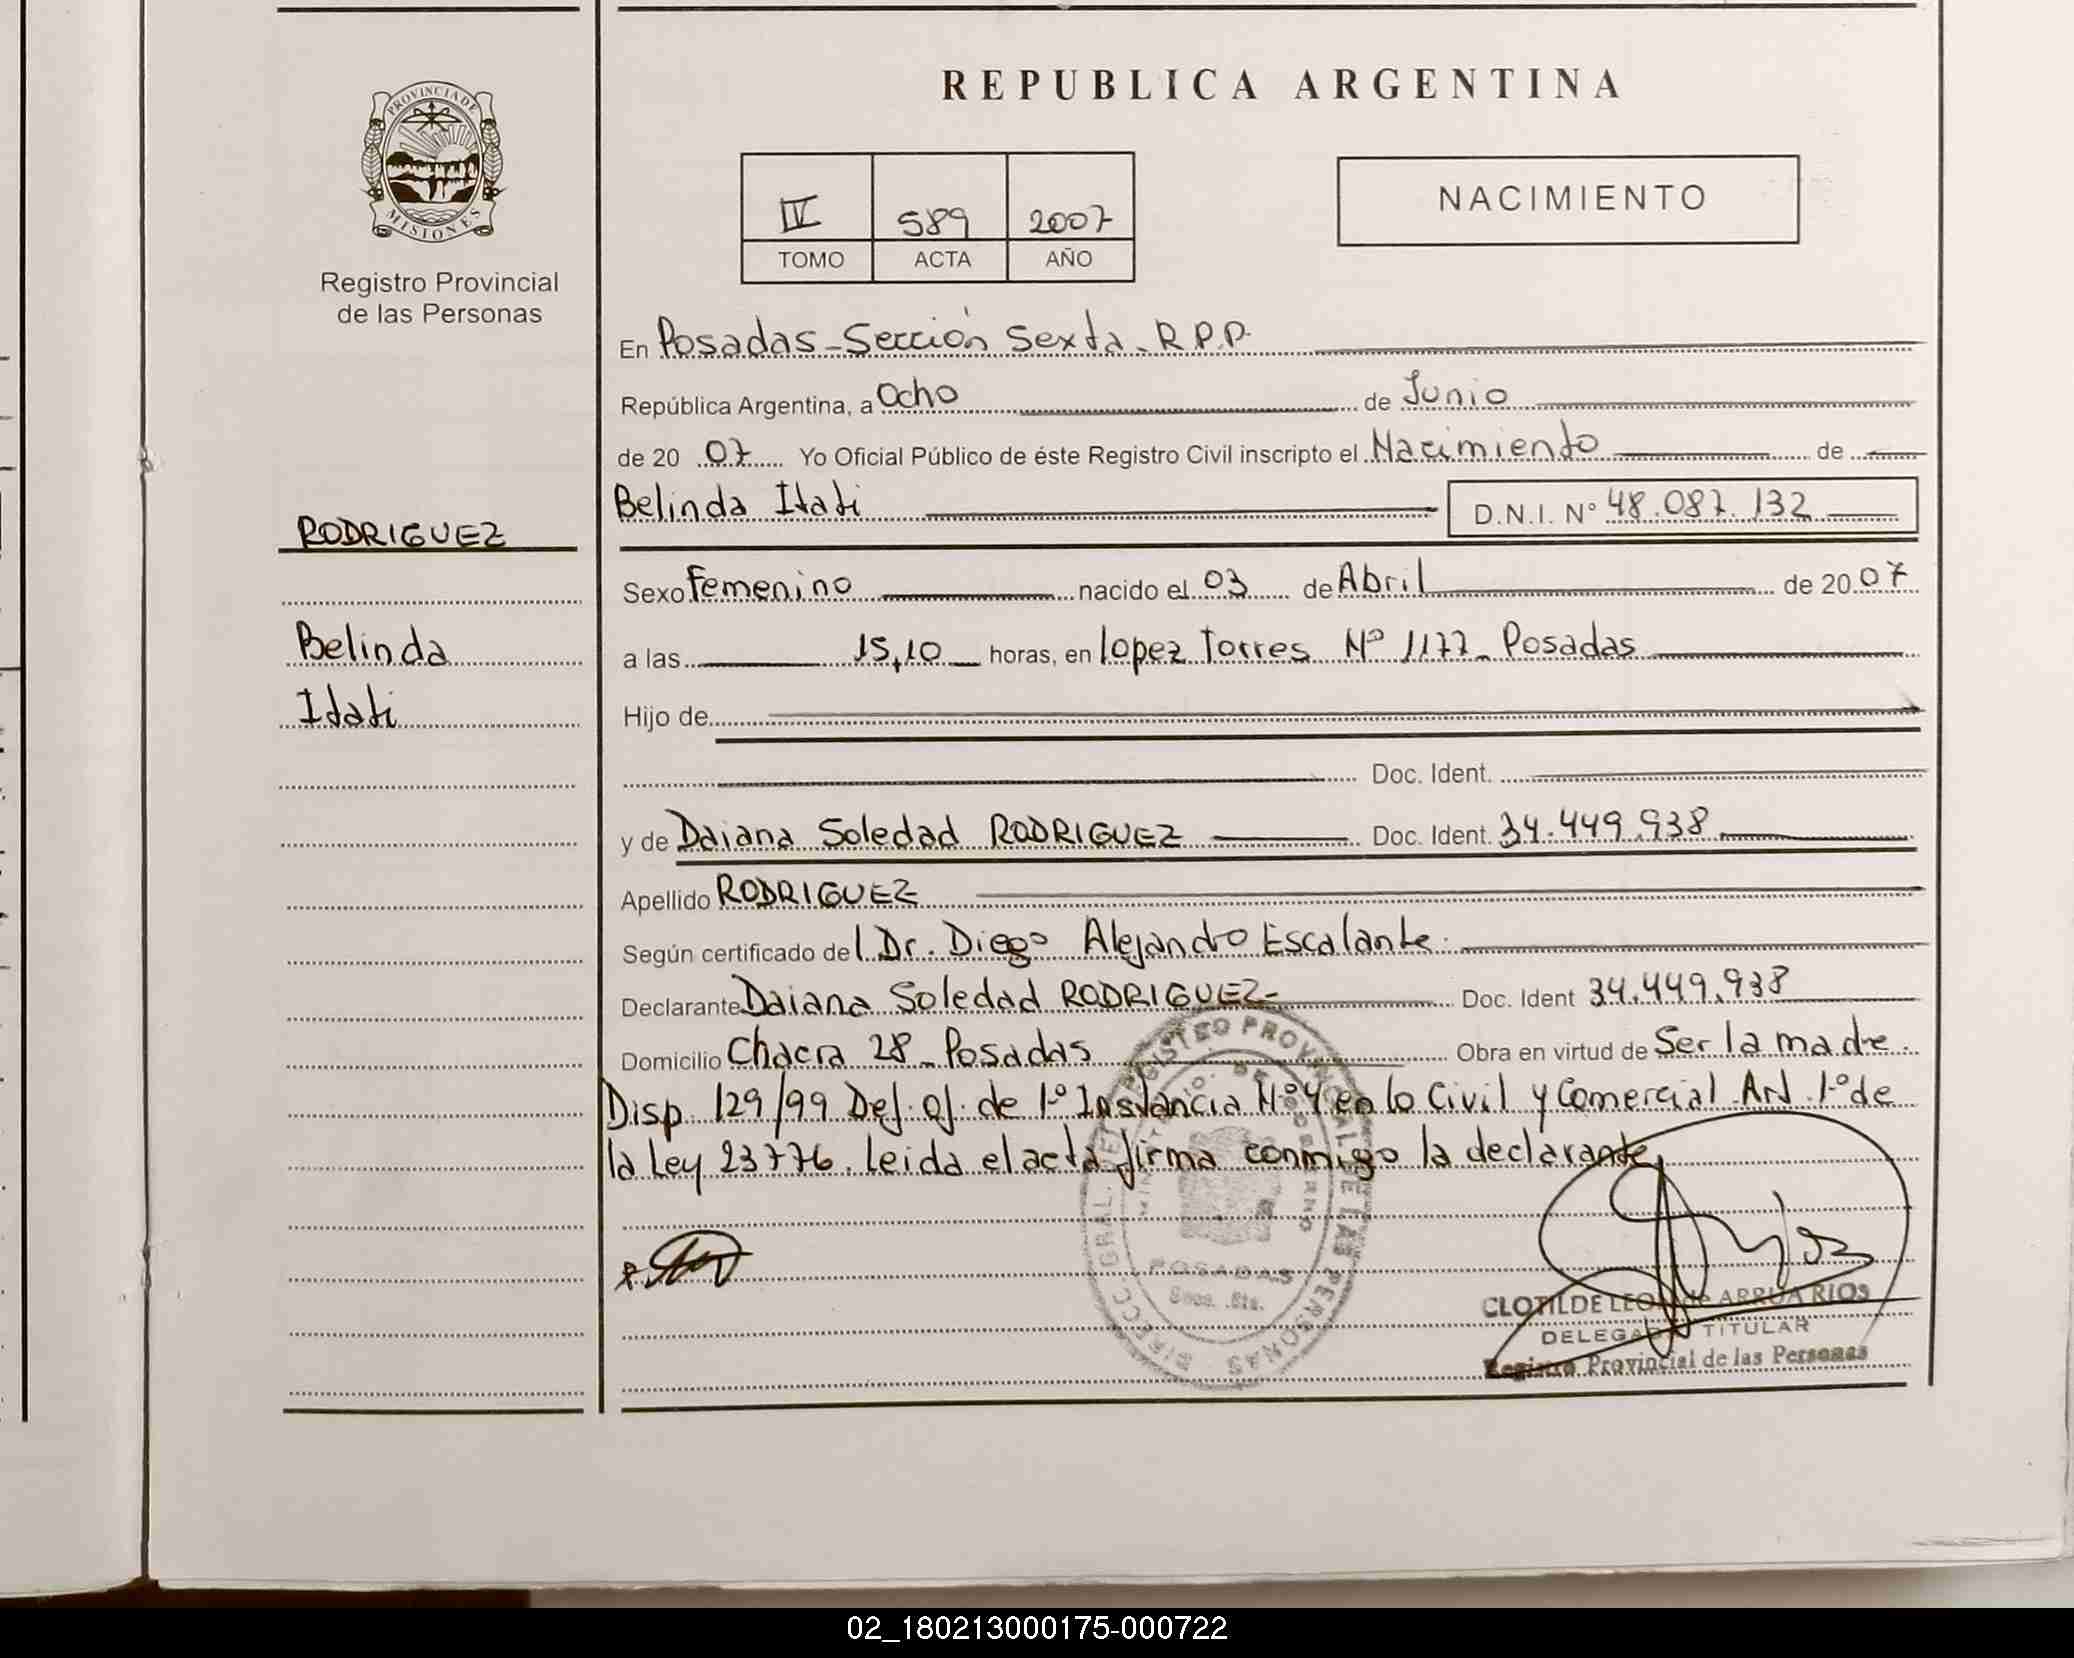 REPUBLICA ARGENTINA
PROVINCIA DE
MISIONES
Registro Provincial
de las Personas
IV 589 2007
TOMO ACTA AÑO
NACIMIENTO
En Posadas - Sección Sexta - R.P.P.
República Argentina, a Ocho de Junio
de 20 07 Yo Oficial Público de éste Registro Civil inscripto el Nacimiento de
Belinda Itati D.N.I. N° 48.087.132
RODRIGUEZ
Belinda
Itati
Sexo Femenino nacido el 03 de Abril de 20 07
a las 15,10 horas, en Lopez Torres Nº 1177 - Posadas
Hijo de
Doc. Ident.
y de Daiana Soledad RODRIGUEZ Doc. Ident. 34.449.938
Apellido RODRIGUEZ
Según certificado del Dr. Diego Alejandro Escalante.
Declarante Daiana Soledad RODRIGUEZ- Doc. Ident 34.449.938
Domicilio Chacra 28 - Posadas Obra en virtud de Ser la madre.
Disp. 129/99 Def. Of. de 1º Instancia Nº 4 en lo Civil y Comercial Art. 1º de
la Ley 23776. Leida el acta firma conmigo la declarante
DIRECC. GRAL. DEL REGISTRO PROVINCIAL DE LAS PERSONAS
MINISTERIO DE GOBIERNO
POSADAS
CLOTILDE LEON de ARRUA RIOS
DELEGADA TITULAR
Registro Provincial de las Personas
02_180213000175-000722